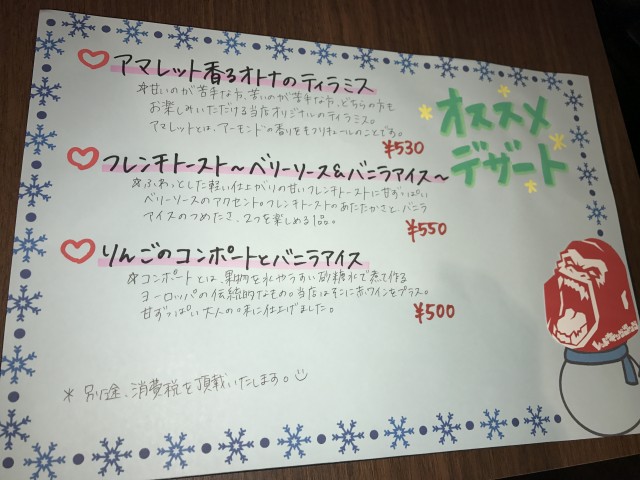 オススメ
デザート
アマレット香るオトナのティラミス
☆甘いのが苦手な方、苦いのが苦手な方、どちらの方も
お楽しみいただける当店オリジナルのティラミス。
アマレットとは、アーモンドの香りをもつリキュールのことです。
¥530
フレンチトースト～ベリーソース&バニラアイス～
☆ふわっとした軽い仕上がりの甘いフレンチトーストに甘ずっぱい
ベリーソースのアクセント。フレンチトーストのあたたかさと、バニラ
アイスのつめたさ、2つを楽しめる1品。
¥550
りんごのコンポートとバニラアイス
☆コンポートとは、果物を水やうすい砂糖水で煮て作る
ヨーロッパの伝統的なもの。当店はそこに赤ワインをプラス。
甘ずっぱい大人の味に仕上げました。
¥500
* 別途、消費税を頂載いたします。